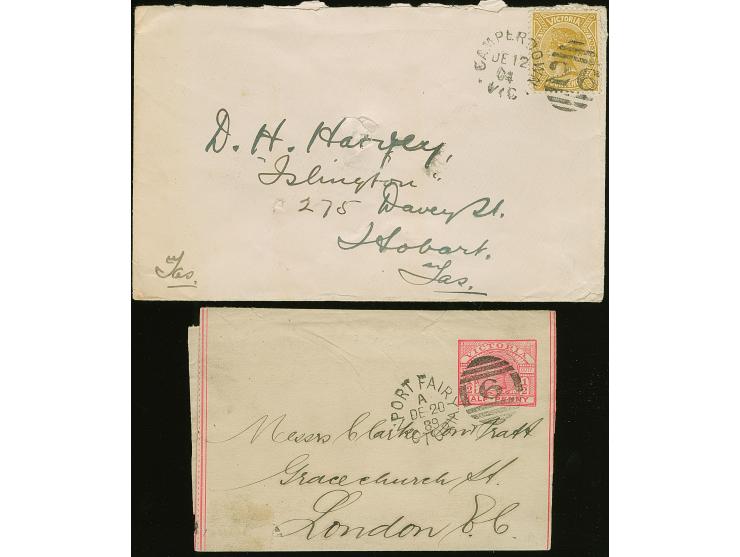 VICTORIA
CAMPERDOWN
DE 12
04
VIC
26
D. H. Harvey,
"Islington"
275 Davey St.
Hobart.
Tas.
Tas.
VICTORIA
HALF PENNY
PORT FAIRY
A
DE 20
89
VICTORIA
6
Messrs Clarke Son Pratt
Gracechurch St.
London E.C.